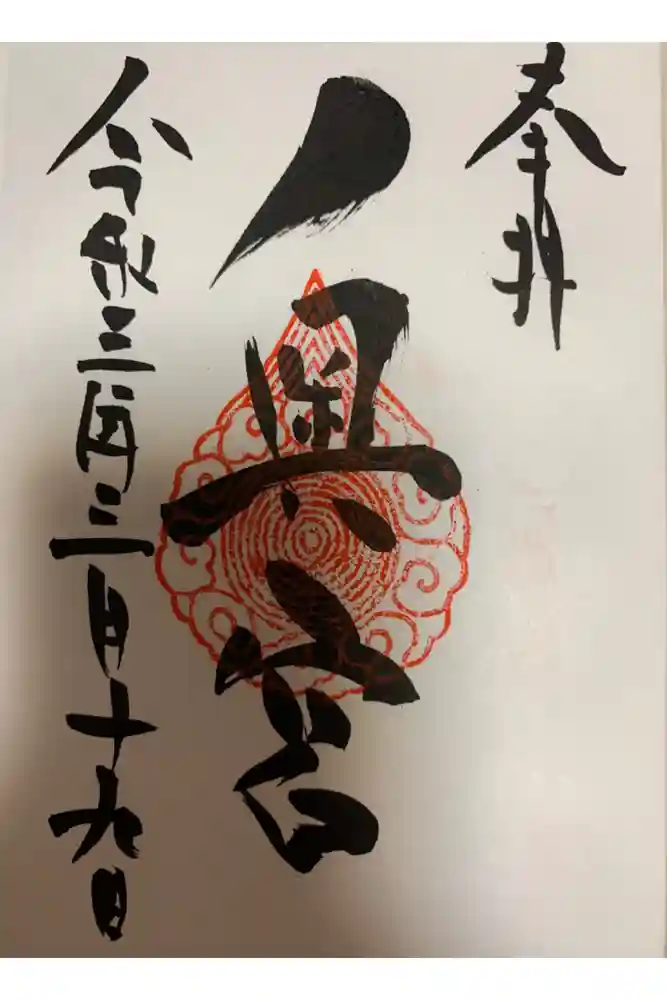 奉拝
奥宮
令和三年二月十九日